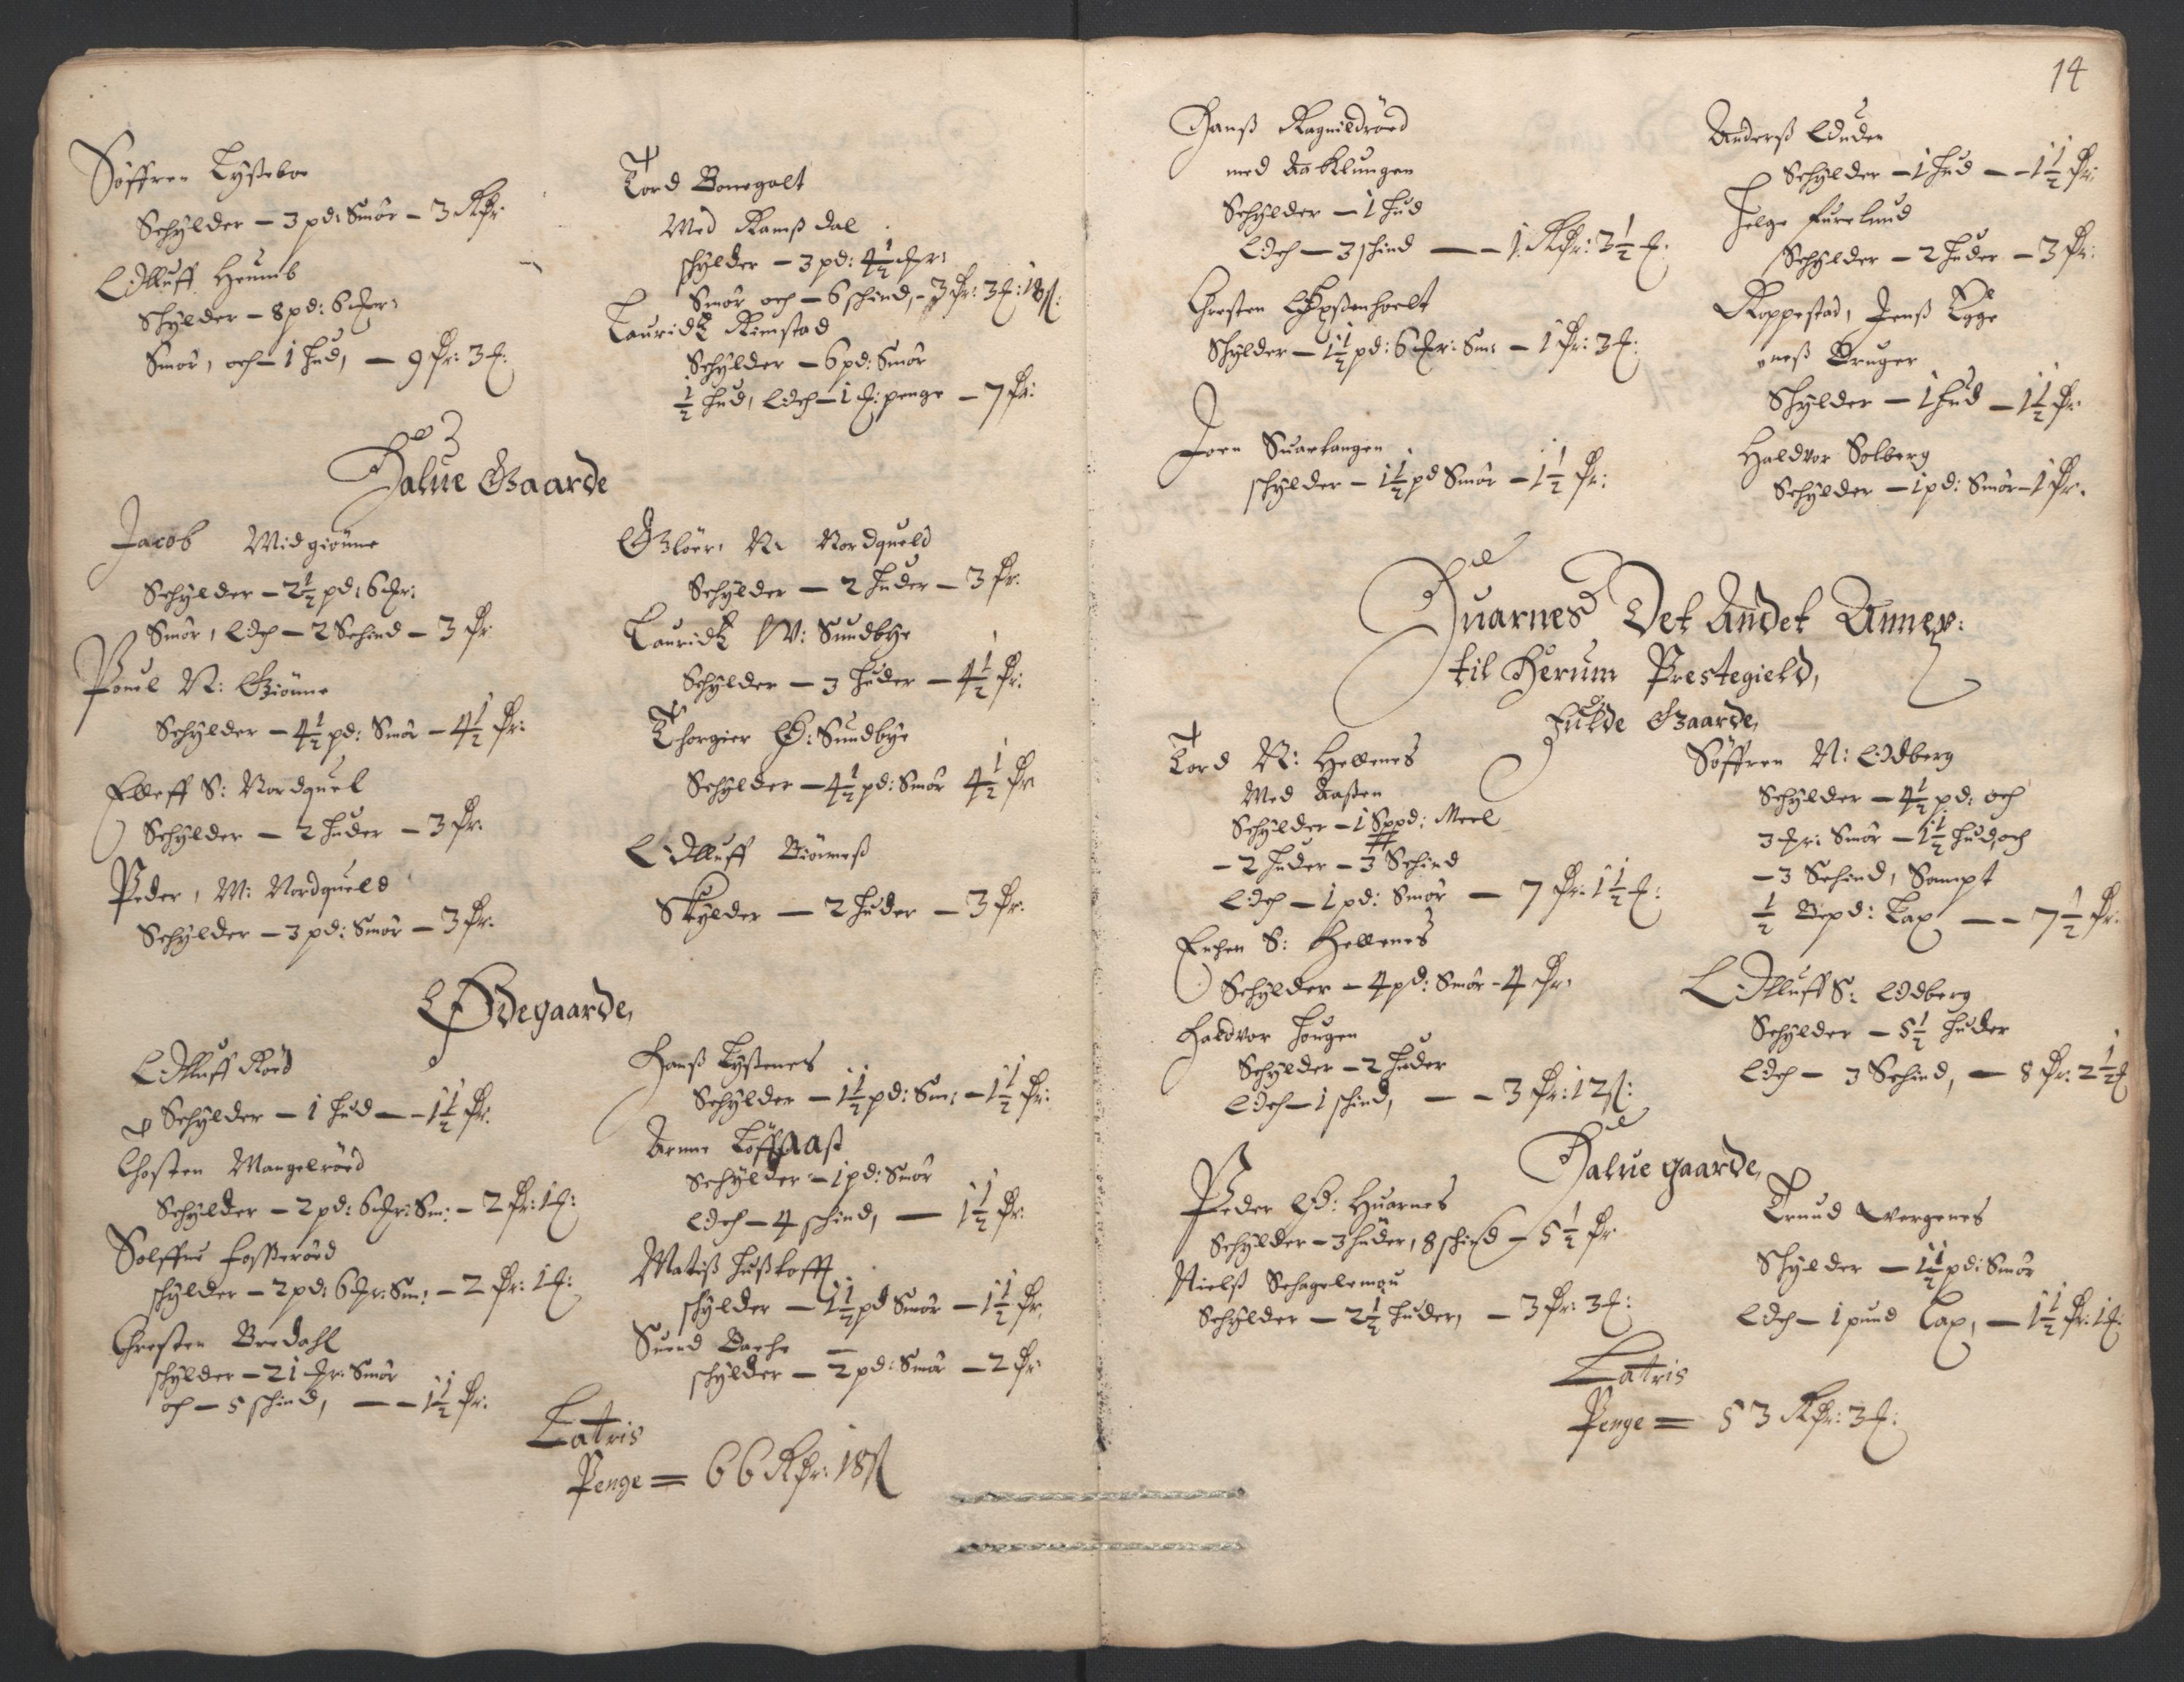 Søffren Lysseboe
Schylder – 3 pd: Smör – 3 Rdr:
Oelluff Heumb
Schylder – 8 pd: 6 mr:
Smör, och – 1 hud, – 9 dr: 3 ort:
Tord Bonegalt
Med Ramssdal
schylder – 3 pd: 4½ mr:
Smör och – 6 schind, – 3 dr: 3 ort: 18 ß:
Lauridtz Rimstad
Schylder – 6 pd: Smör
½ hud, Och – 1 ort: penge – 7 dr:
Halue Gaarde
Jacob Midgiönne
Schylder – 2½ pd: 6 mr:
Smör, Och – 2 Schind – 3 dr
Pouel N: Giönne
Schylder – 4½ pd: Smör – 4½ dr:
Elleff S: Nordquel
Schylder – 2 huder – 3 dr.
Peder, M: Nordqueld
Schylder – 3 pd: Smör – 3 dr.
Glöer, N: Nordqueld
Schylder – 2 huder – 3 dr:
Lauridtz W: Sundbye
Schylder – 3 huder – 4½ dr:
Thorgier Ø: Sundbye
Schylder – 4½ pd: Smör 4½ dr
Oelluff Biörness
Skylder – 2 huder – 3 dr:
Ødegaarde,
Oelluff Röed
Schylder – 1 hud – – 1½ dr.
Chosten Mangelröed
Schylder – 2 pd: 6 mr: Sm: – 2 dr: 1 ort:
Solffue Fosseröed
schylder – 2 pd: 6 mr: Sm: – 2 dr: 1 ort:
Christen Bredahl
schylder – 21 mr: Smör
och – 5 schind, – – 1½ dr:
Hanss Lyssenes
Schylder – 1½ pd: Sm: – 1½ dr:
Arnne Löffaass
Schylder – 1 pd: Smör
Och – 4 schind, – 1½ dr
Matiss Husstofft
schylder – 1½ pd Smör – 1½ dr,
Suend Bache
schylder – 2 pd: Smör – 2 dr
Latris
Penge = 66 Rdr: 18 ß
14
Hanss Ragnildröed
med Aaklungen
Schylder – 1 hud
Och – 3 schind – – 1 Rdr: 3½ ort:
Christen Epssenhoelt
Schylder – 1½ pd: 6 mr: Sm: – 1 dr: 3 ort:
Joen Suartangen
schylder – 1½ pd Smör – 1½ dr:
Anderss Oduden
Schylder – 1 hud – – 1½ dr:
Helge Furelund
Schylder – 2 huder – 3 dr:
Roppestad, Jenss Egge
oness Bruger
Schylder – 1 hud – 1½ dr:
Haldvor Solberg
Schylder – 1 pd: Smör – 1 dr.
Huarnes Det Andet Annex:
til Herum Prestegield,
Fulde Gaarde,
Tord N: Hellenes
Med Aassen
Schylder – 1 Sppd: Meel
– 2 huder – 3 Schind
Och – 1 pd: Smör – 7 dr: 1½ ort:
Enchen S: Hellenes
Schylder – 4 pd: Smör – 4 dr:
Haldvor Hougen
Schylder – 2 huder
Och – 1 schind, – – 3 dr: 12 ß:
Søffren N: Odberg
Schylder – 4½ pd: och
3 mr: Smör – 1½ hud, och
– 3 Schind, Sampt
½ Bepd: Lax – – 7½ dr:
Oelluff S: Odberg
Schylder – 5½ huder
Och – 3 Schind, – 8 dr: 2½ ort
Halue gaarde,
Peder Ø: Huarnes
Schylder – 3 huder, 8 schind – 5½ dr
Nielss Schagelemou
Schylder – 2½ huder, – 3 dr: 3 ort:
Trund Wergenes
Schylder – 1½ pd: Smör
Och – 1 pund Lax, – 1½ dr: 1 ort:
Latris
Penge = 53 Rdr: 3 ort: